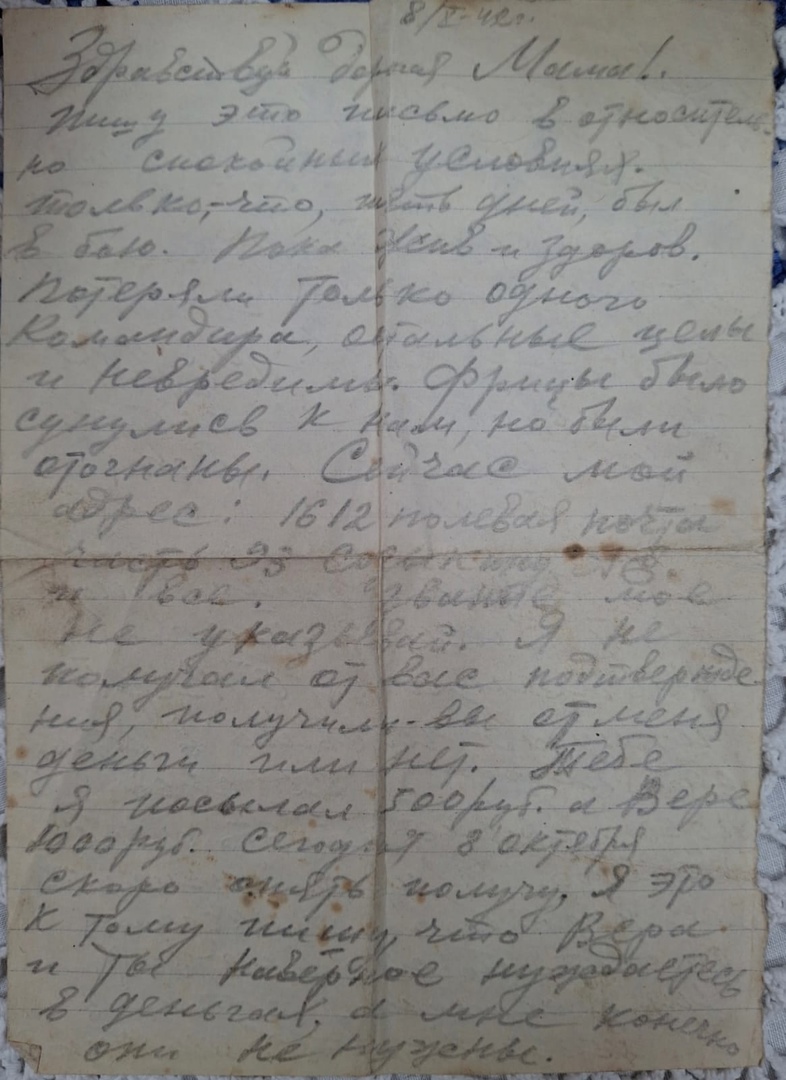 8/X-42г.
Здравствуй дорогая Мама!
Пишу это письмо в относитель-
но спокойных условиях.
только-что, пять дней, был
в бою. Пока жив и здоров.
Потеряли только одного
Командира, остальные целы
и невредимы. Фрицы было
сунулись к нам, но были
отогнаны. Сейчас мой
адрес: 1612 полевая почта
часть 93
и все. Звание мое
не указывай. Я не
получал от вас подтвержде
ния, получили-вы от меня
деньги или нет. Тебе
я посылал 500руб. а Вере
1000руб. Сегодня 8 октября
скоро опять получу. Я это
к тому пишу, что Вера
и ты наверное нуждаетесь
в деньгах, а мне конечно
они не нужны.